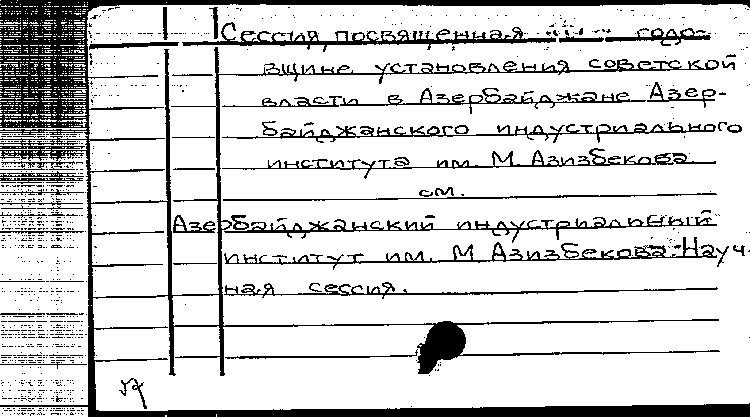 Сессия, посвященная годо-
вщине установления советской
власти в Азербайджане Азер-
байджанского индустриального
института им. М. Азизбекова
см.
Азербайджанский индустриальный
институт им. М. Азизбекова. Науч-
ная сессия.